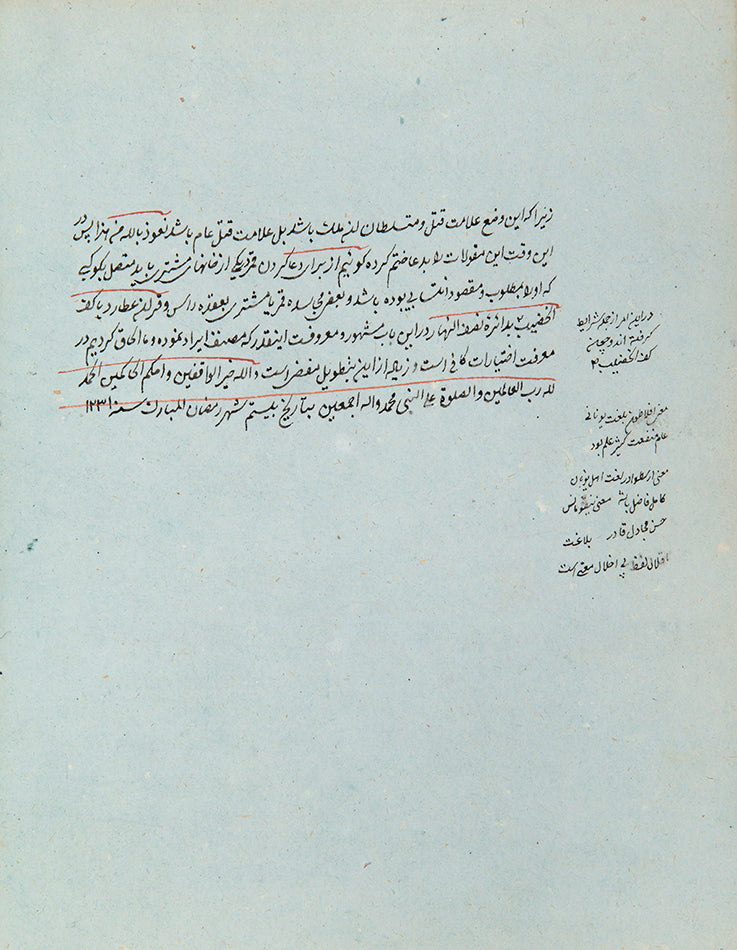 زیرا که این وضع علامت قتل و متسلطان ملک باشد بل علامت قتل عام باشد نعوذ بالله من هذا پس در
این وقت این مقولات لابد عا ختم کرده کوئیم از برای دعا کردن قمر در یکی از خانهای مشتری باید متصل بکوکبی
که اولا مطلوب و مقصود انتسابی بوده باشد و بعضی قمر با مشتری بعقده راس و قران عطارد با کف
الخضیب بدائره نصف النهار در این باب مشهور و معروفست اینقدر که مصنف ایراد نموده و ما الحاق کردیم در
معرفت اختیارات کافی است و زیاده از این بتطویل مفضی است والله خیر الواقفین و احکم الحاکمین الحمد
لله رب العالمین والصلوة علی النبی محمد واله اجمعین بتاریخ بیستم شهر رمضان المبارک سنه ۱۲۳۱
در این امر از جمله شرایط
گرفته اند و چنان
کف الخضیب
معنی افلاطون بلغت یونانی
عام منفعت کثیر علم بود
معنی ارسطو در لغت اهل یونان
کامل فاضل باشد معنی
حسن مجادل قادر بلاغت
اقلال لفظ بی اخلال معنی است